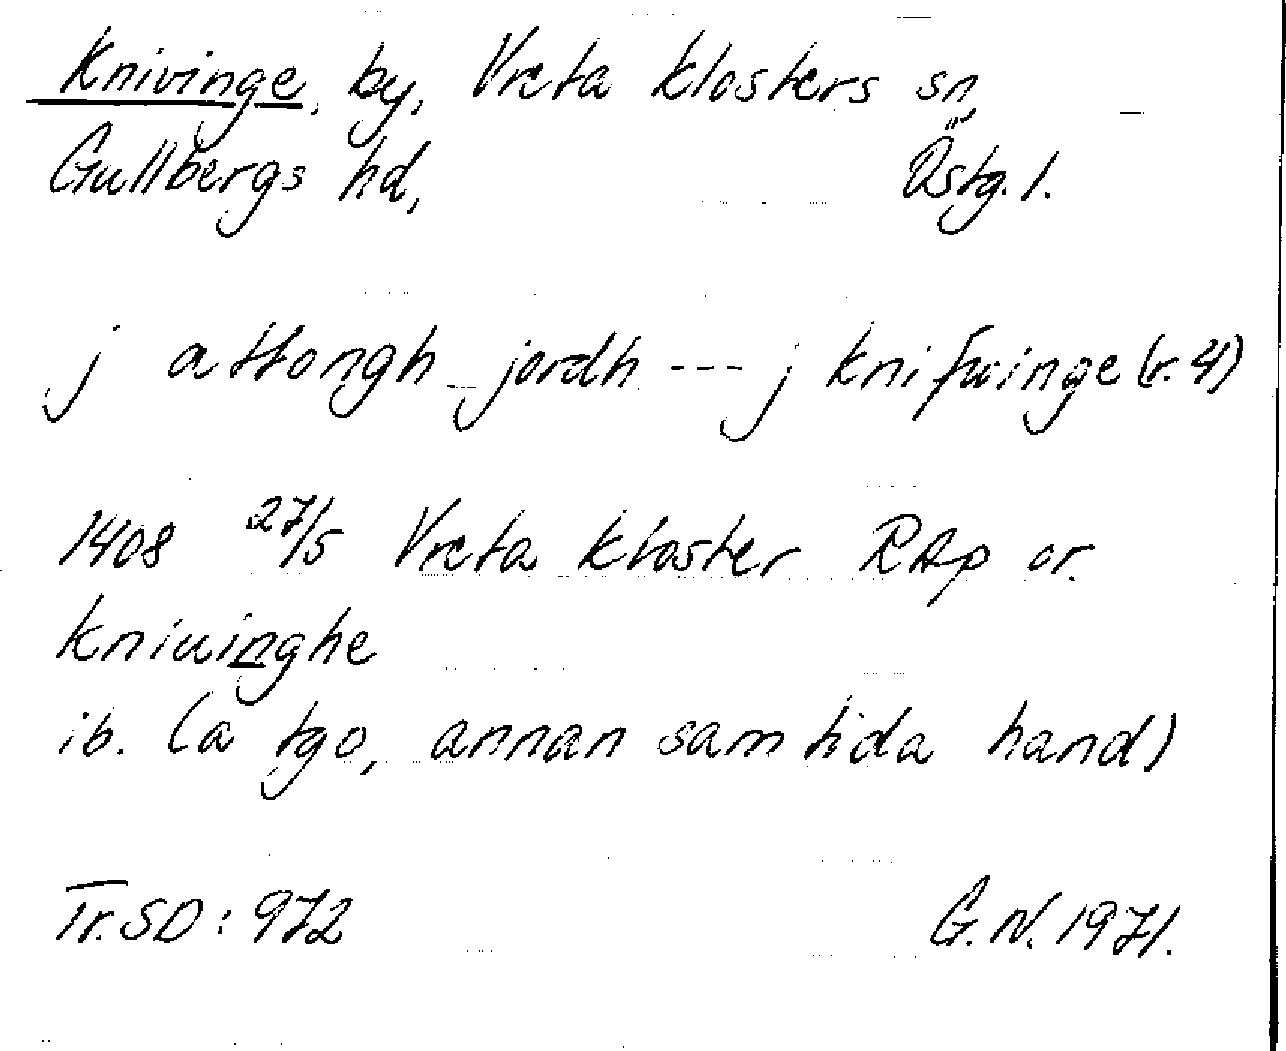 Knivinge, by, Vreta klosters sn,
Gullbergs hd, Östg. l.
j attongh jordh --- j knifwinge (r. 4)
1408 27/5 Vreta kloster RAp or.
kniuinghe
ib. (a tgo, annan samtida hand)
Tr. SD: 972 G.N. 1971.